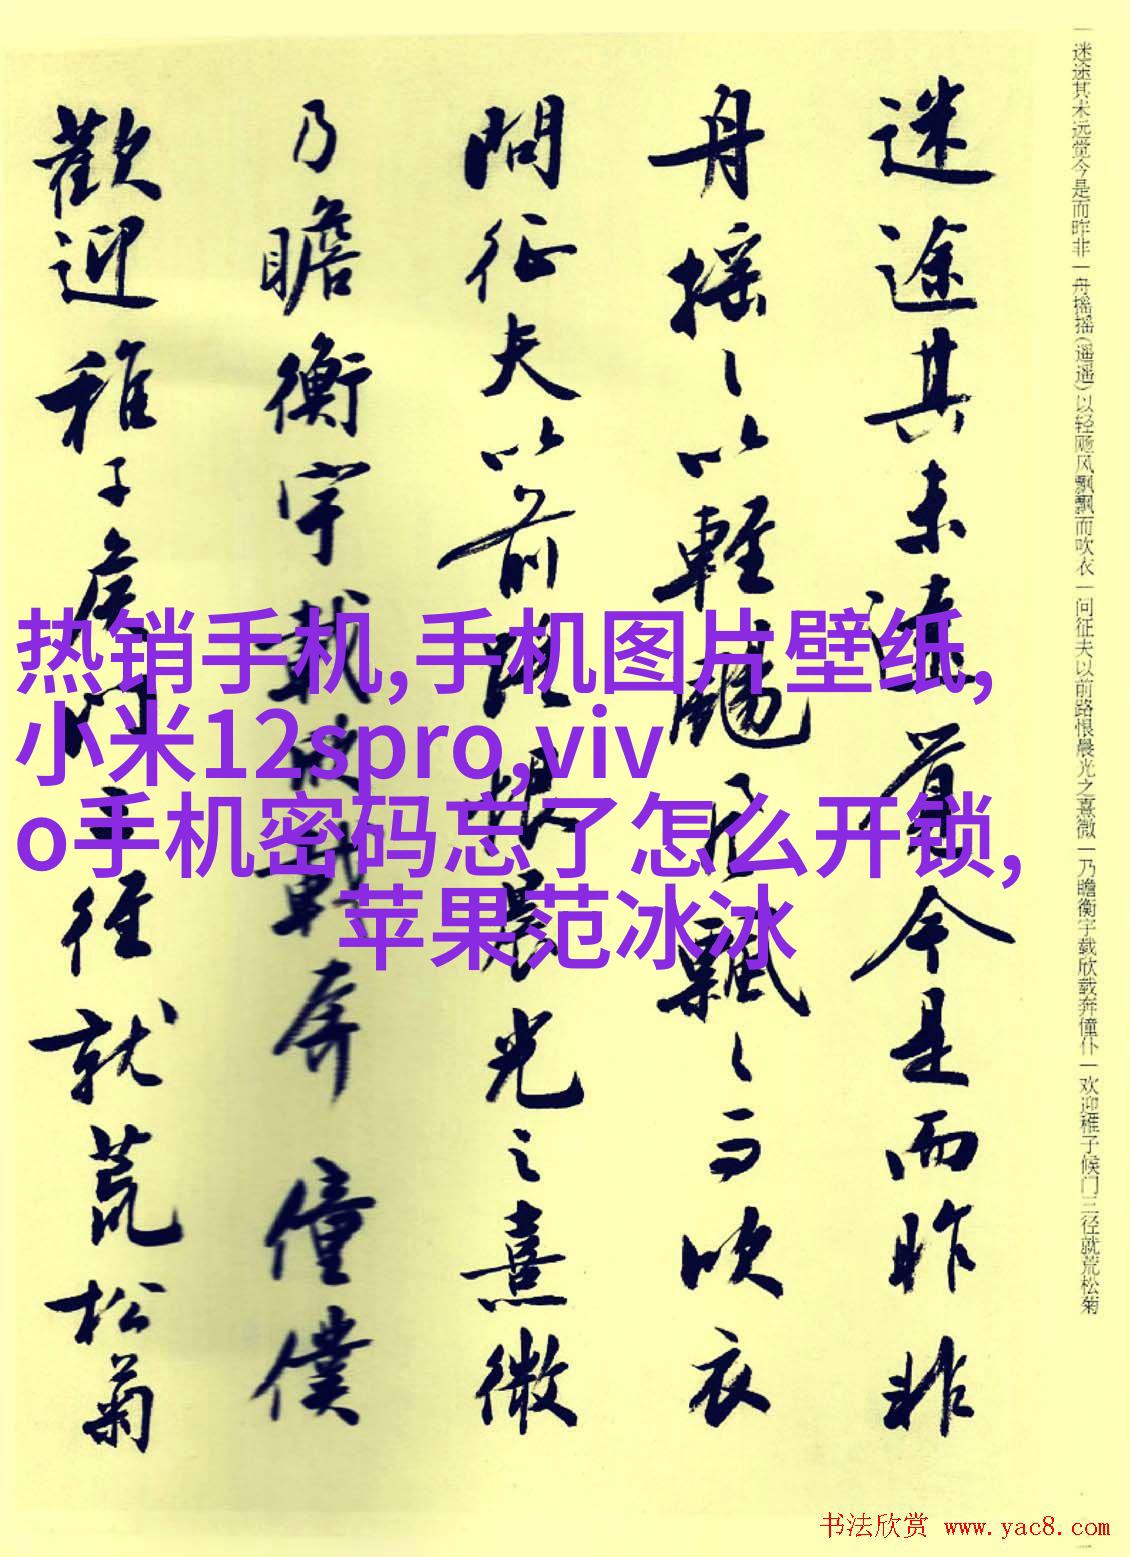 迷途其未遠覺今是而昨非
舟摇〻以輕颺風飄〻而吹衣
問征夫以前路恨晨光之熹微
乃瞻衡宇載欣載奔僮僕
歡迎稚子候門三徑就荒松菊
一迷途其未远觉今是而昨非一舟摇摇(遥遥)以轻飏风飘飘而吹衣一问征夫以前路恨晨光之熹微一乃瞻衡宇载欣载奔僮仆一欢迎稚子候门三径就荒松菊
热销手机,手机图片壁纸,
小米12spro,viv
o手机密码忘了怎么开锁,
苹果范冰冰
书法欣赏 www.yac8.com